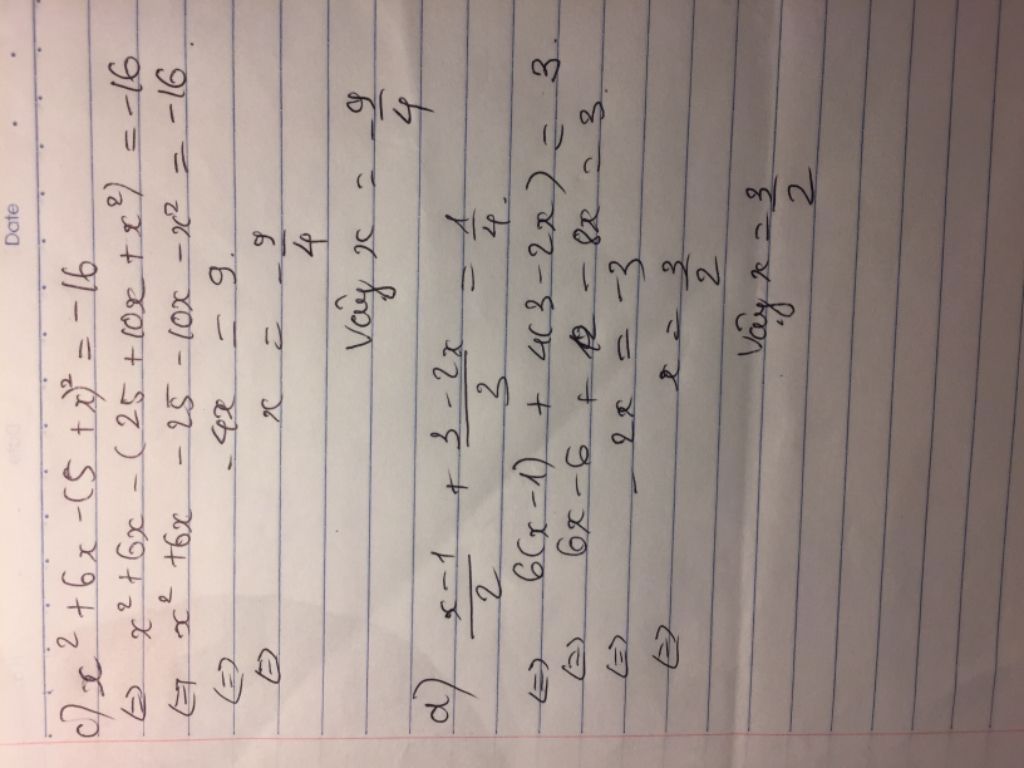 Date
c) x² + 6x - (5 + x)² = -16
(=) x² + 6x - (25 + 10x + x²) = -16
(=) x² + 6x - 25 - 10x - x² = -16
(=) -4x = 9.
(=) x = -9/4
Vậy x = -9/4
d) x-1/2 + 3-2x/3 = 1/4.
(=) 6(x-1) + 4(3-2x) = 3.
(=) 6x-6 + 12 - 8x = 3.
(=) -2x = -3
(=) x = 3/2
Vậy x = 3/2